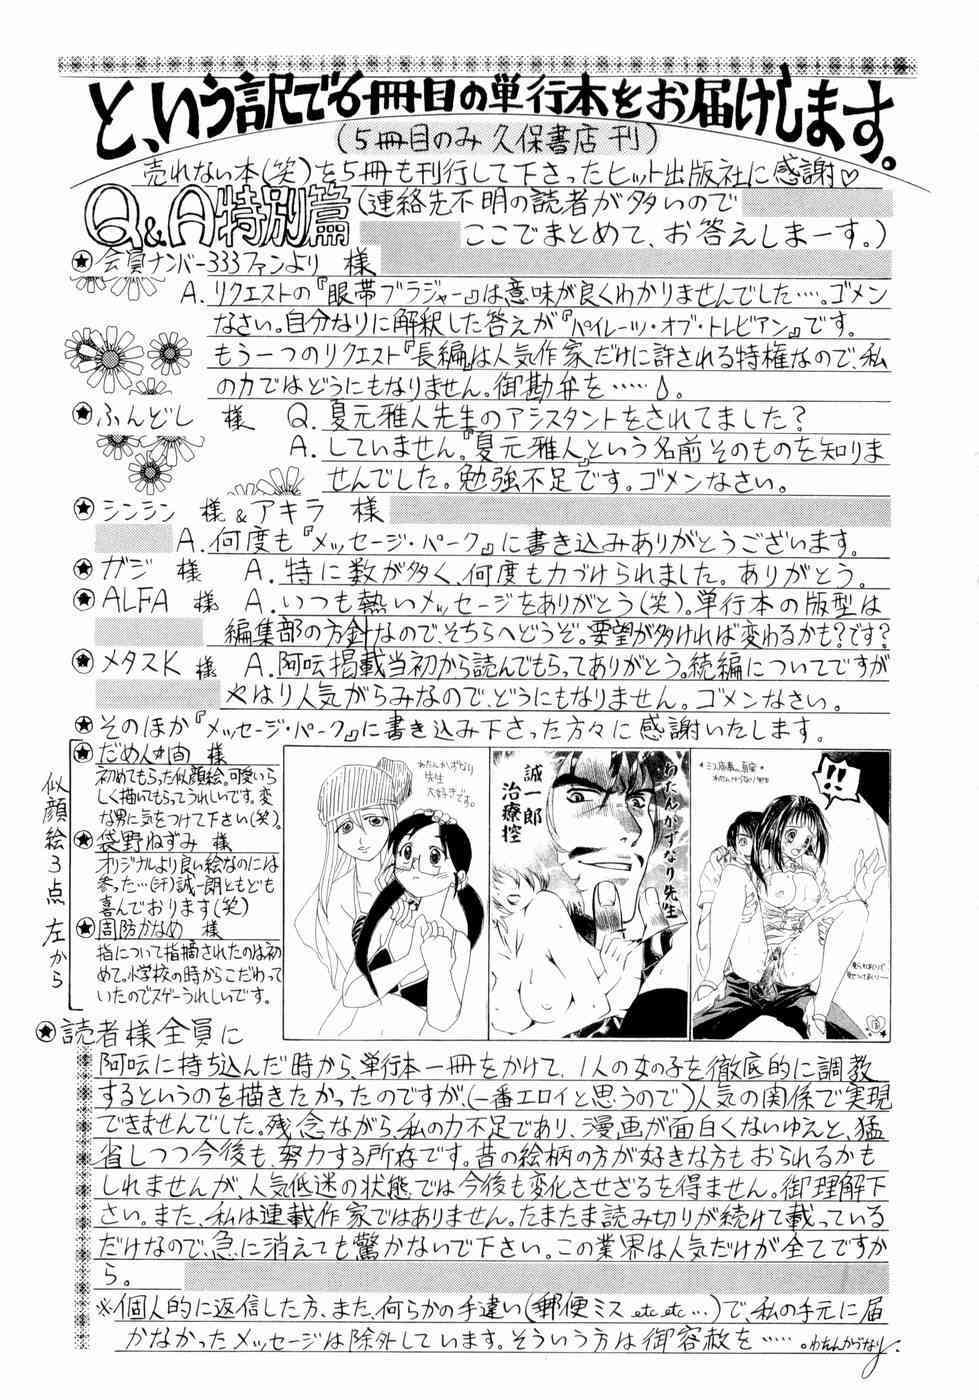 と、いう訳で6冊目の単行本をお届けします。
(5冊目のみ久保書店刊)
売れない本(笑)を5冊も刊行して下さったヒット出版社に感謝♡
Q&A特別篇
(連絡先不明の読者が多いので
ここでまとめて、お答えしまーす。)
会員ナンバー333ファンより 様
A. リクエストの『眼帯ブラジャー』は意味が良くわかりませんでした….ゴメン
なさい。自分なりに解釈した答えが『パイレーツ・オブ・トレビアン』です。
もう一つのリクエスト『長編』は人気作家だけに許される特権なので、私
の力ではどうにもなりません。御勘弁を……。
ふんどし 様 Q. 夏元雅人先生のアシスタントをされてました?
A. していません。『夏元雅人』という名前そのものを知りま
せんでした。勉強不足です。ゴメンなさい。
シンシン 様 & アキラ 様
A. 何度も『メッセージ・パーク』に書き込みありがとうございます。
ガジ 様 A. 特に数が多く、何度も力づけられました。ありがとう。
ALFA 様 A. いつも熱いメッセージをありがとう(笑)。単行本の版型は
編集部の方針なので、そちらへどうぞ。要望が多ければ変わるかも?です?
メタスK 様 A. 阿吽掲載当初から読んでもらってありがとう。続編についてですが
やはり人気がらみなので、どうにもなりません。ゴメンなさい。
そのほか『メッセージ・パーク』に書き込み下さった方々に感謝いたします。
似顔絵3点 左から
だめ人間 様
初めてもらった似顔絵。可愛いら
しく描いてもらってうれしいです。変
な男に気をつけて下さい(笑)。
袋野ねずみ 様
オリジナルより良い絵なのには
参った…(汗)誠一朗ともども
喜んでおります(笑)
周防かなめ 様
指について指摘されたのは初
めて。小学校の時からこだわって
いたのでスゲーうれしいです。
わたんかずなり
先生
大好きです。
誠一郎
治療控
わたんかずなり先生
!!
読者様全員に
阿吽に持ち込んだ時から、単行本一冊をかけて、1人の女の子を徹底的に調教
するというのを描きたかったのですが、(一番エロイと思うので)人気の関係で実現
できませんでした。残念ながら、私の力不足であり、漫画が面白くないゆえと、猛
省しつつ今後も、努力する所存です。昔の絵柄の方が好きな方もおられるかも
しれませんが、人気低迷の状態では今後も変化させざるを得ません。御理解下
さい。また、私は連載作家ではありません。たまたま読み切りが続けて載っている
だけなので、急に消えても驚かないで下さい。この業界は人気だけが全てですか
ら。
※個人的に返信した方、また、何らかの手違い(郵便ミス etc etc…)で、私の手元に届
かなかったメッセージは除外しています。そういう方は御容赦を……
。わたんかずなり